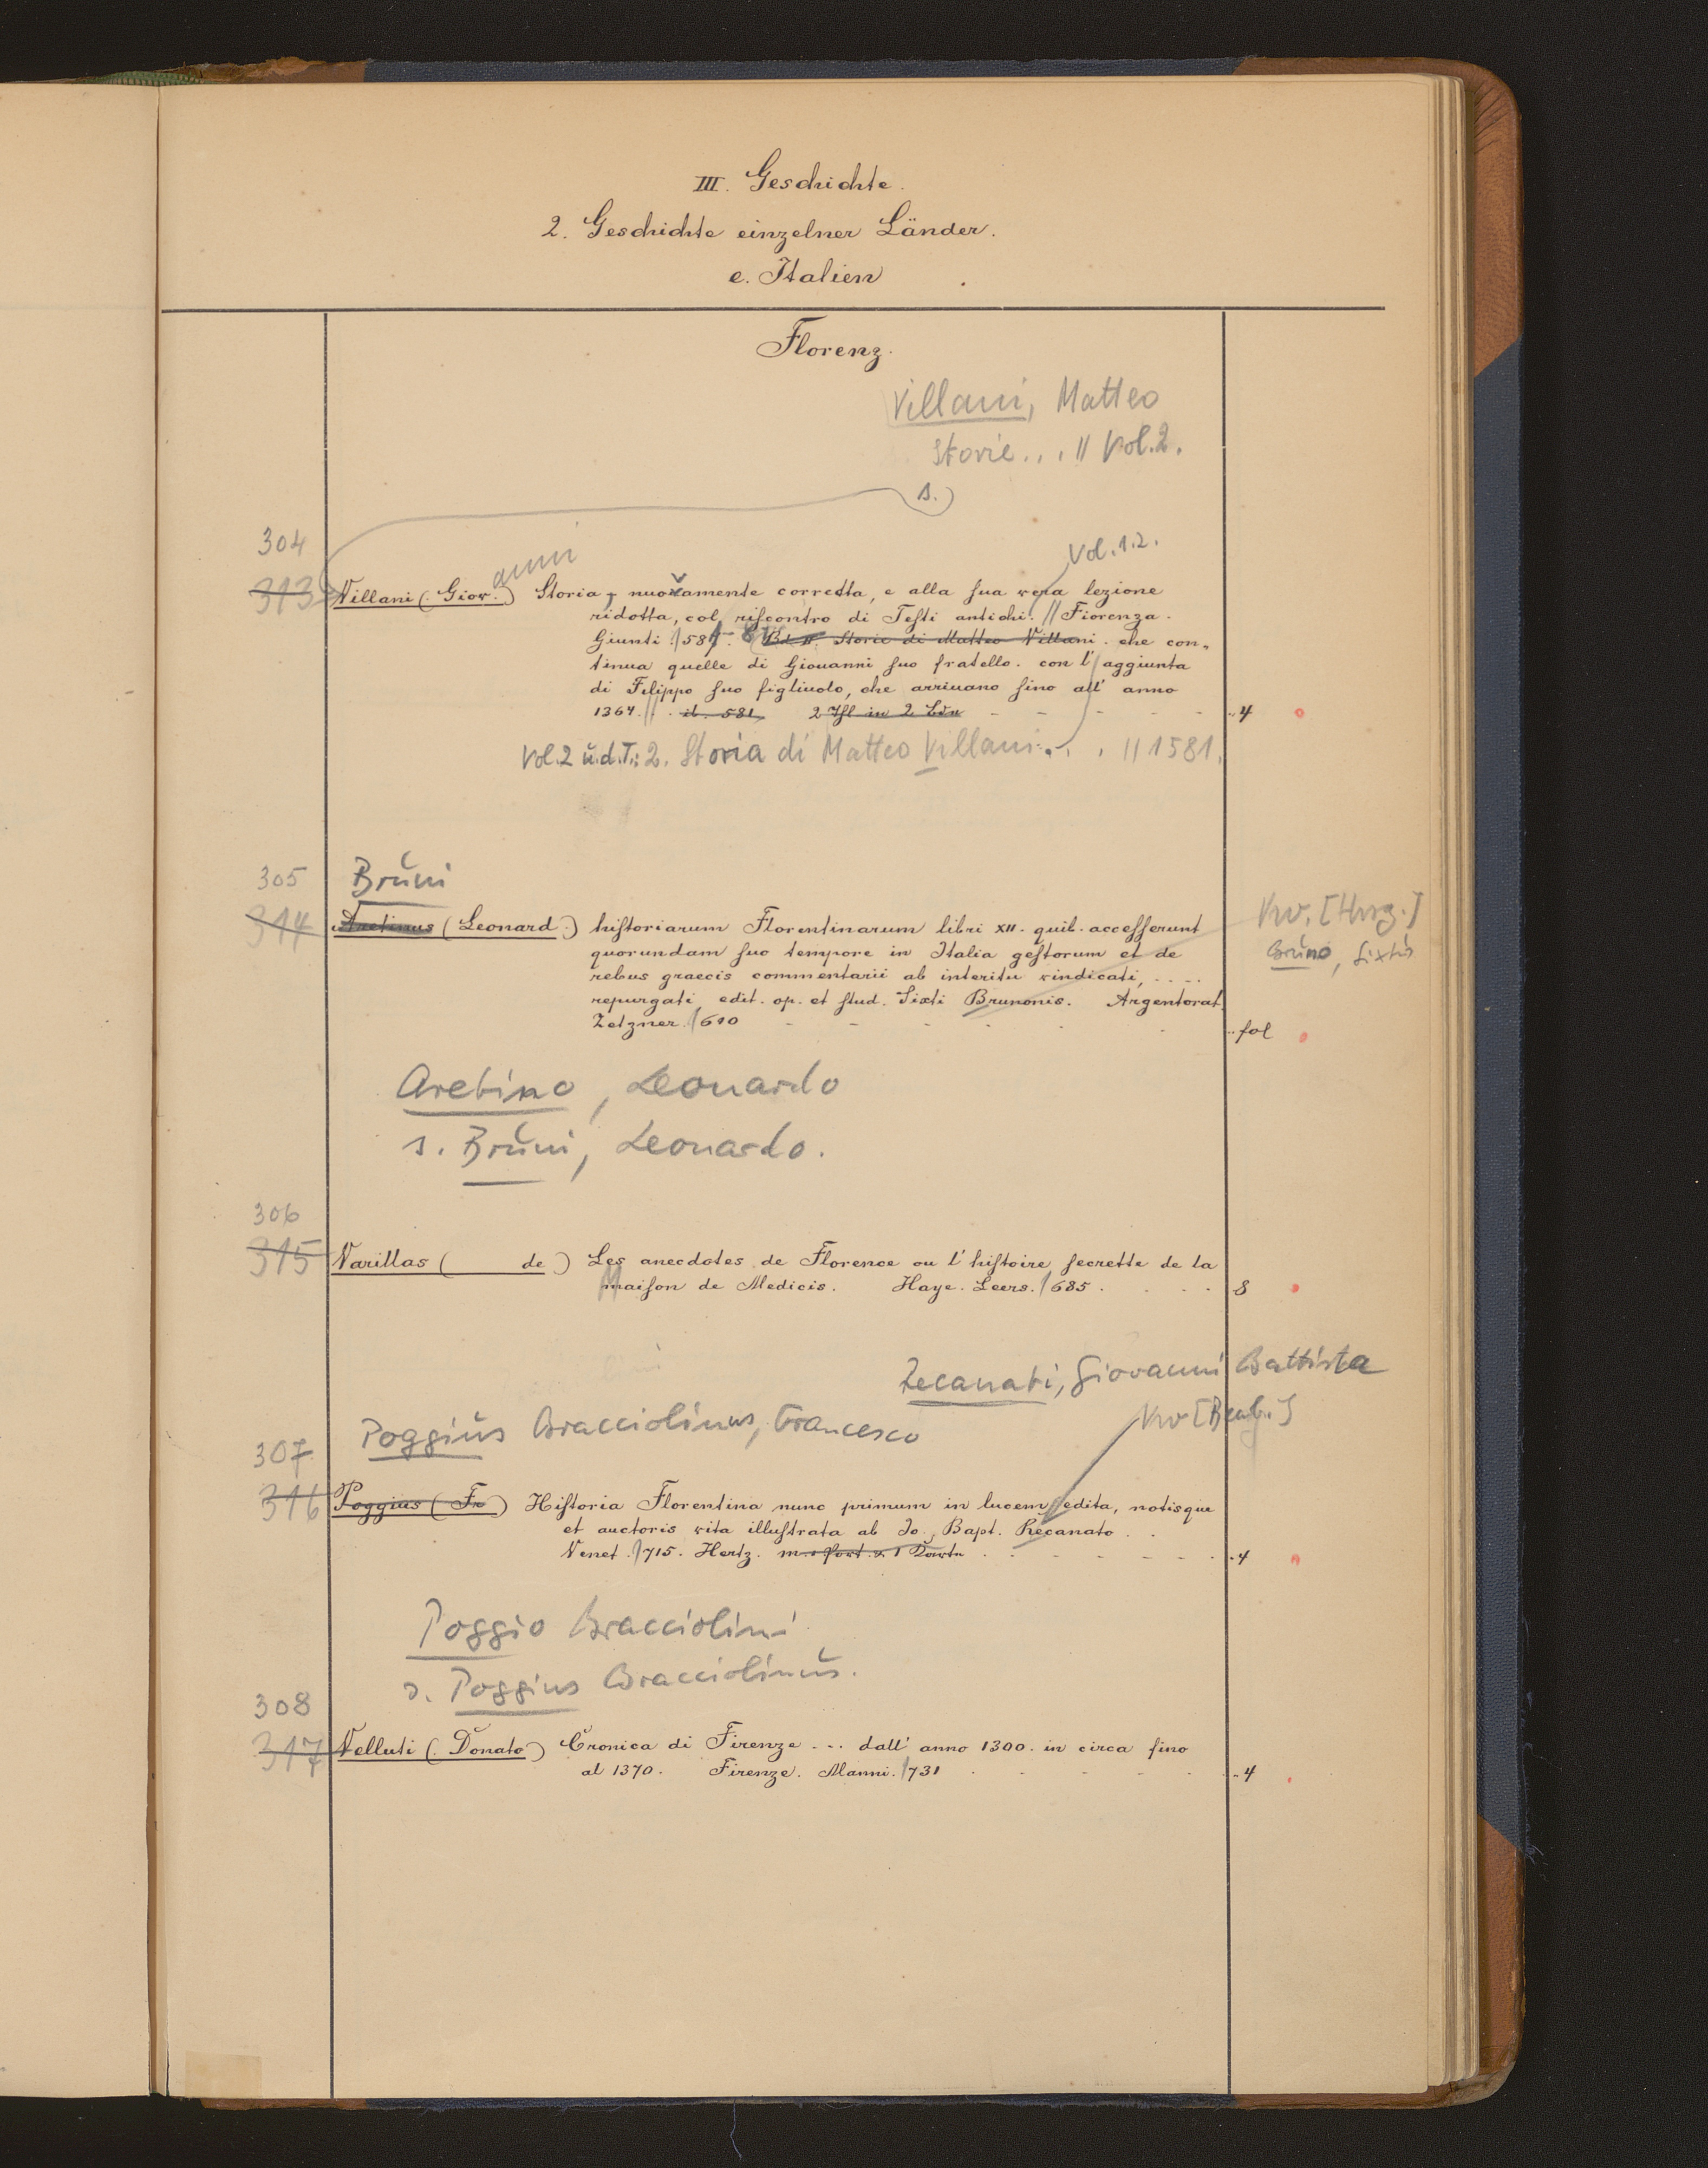 III. Geschichte.
2. Geschichte einzelner Länder.
e. Italien
Florenz.
Villani, Matteo
Storie... // Vol. 2.
s.
304
Vol. 1.2.
anni
313 Villani (Giov.) Storia, nuovamente corretta, e alla sua vera lezione
ridotta, col riscontro di Testi antichi. // Fiorenza.
Giunti. /58 Bd II. Storie di Matteo Villani. che con-
tinua quelle di Giouanni suo fratello. con l'aggiunta
di Filippo suo figliuolo, che arriuano fino all' anno
1364. // ib. 581. 2 Thl in 2 Bdn ..4
Vol. 2 u.d.T.: 2. Storia di Matteo Villani... // 1581.
305 Brŭni
314 Aretinus (Leonard.) historiarum Florentinarum libri XII. quib. accesserunt
quorundam suo tempore in Italia gestorum et de
rebus graecis commentarii ab interitu vindicati, ....
repurgati edit. op. et stud. Sixti Brunonis. Argentorat.
Zetzner. /610 ..fol
Vw. [Hrsg.]
Brŭno, Sixtŭs
Aretino, Leonardo
s. Brŭni, Leonardo.
306
315 Varillas ( de) Les anecdotes de Florence ou l'histoire secrette de la
Maison de Medicis. Haye. Leers. /685. 8
Recanati, Giovanni Battista
Vw [Bearb.]
Poggiŭs Bracciolinus, Francesco
307
316 Poggius (Fr.) Historia Florentina nunc primum in lucem edita, notisque
et auctoris vita illustrata ab Jo. Bapt. Recanato..
Venet. /715. Hertz. ..4
Poggio Bracciolini
s. Poggius Bracciolinŭs.
308
317 Velluti (Donato) Cronica di Firenze ... dall' anno 1300. in circa fino
al 1370. Firenze. Manni. /731 ..4